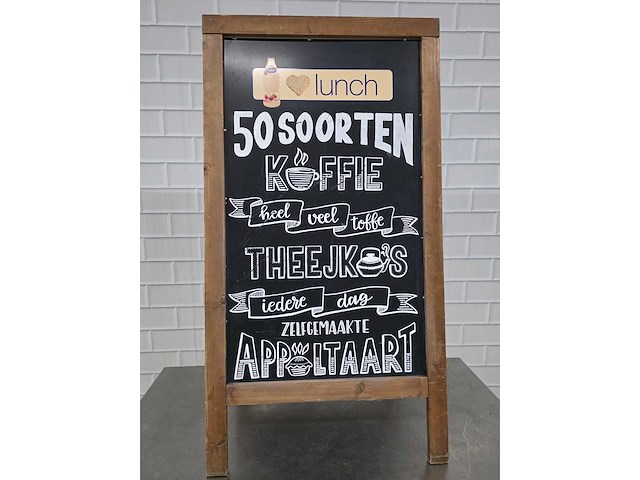 lunch
50 SOORTEN
KOFFIE
heel veel toffe
THEEJKO'S
iedere dag
ZELFGEMAAKTE
APPOLTAART